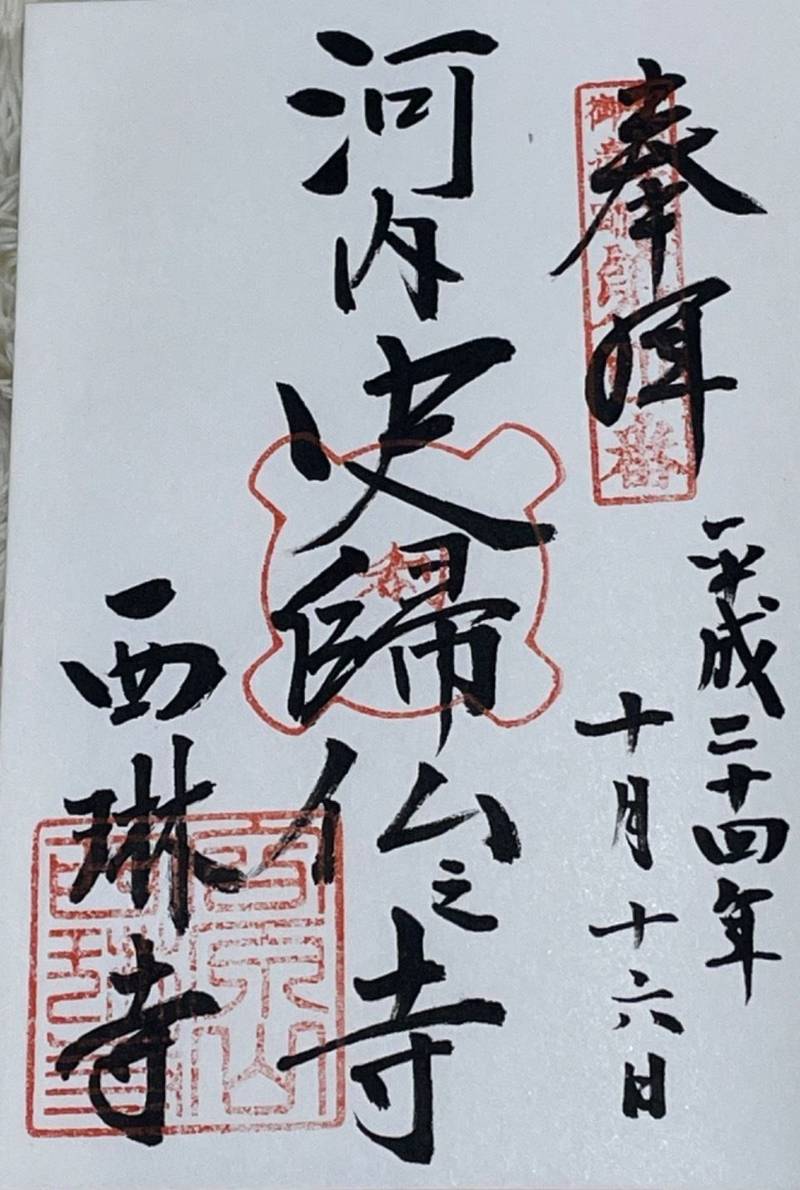 奉拝
平成二十四年
十月十六日
河内史帰仏之寺
西琳寺